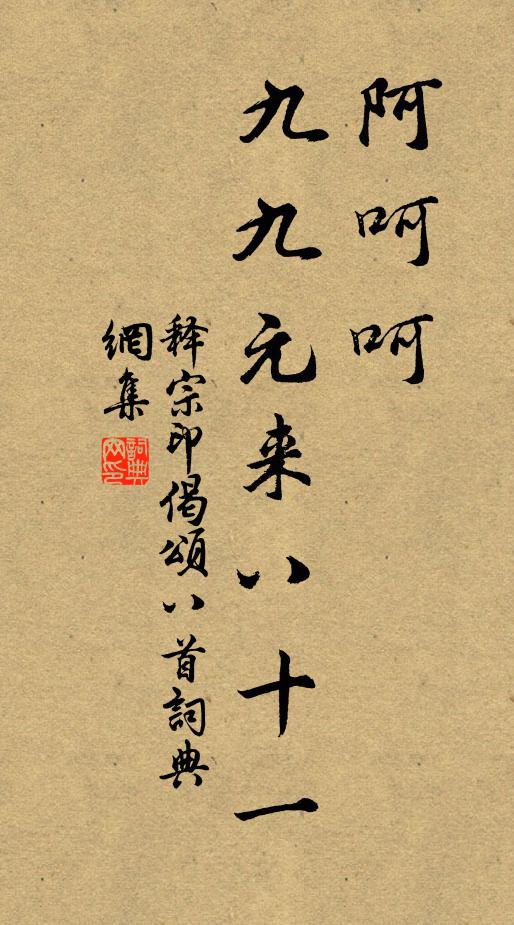 阿呵呵
九九元来八十一
释宗印偈頌八首詞典
網集
詞典
网印